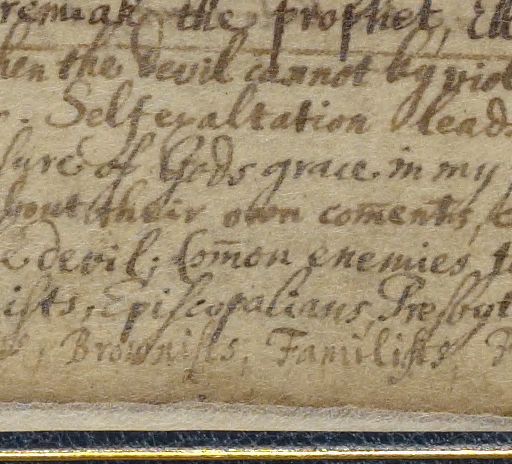 remiah the prophet, Eze
hen the devil cannot by viol
. Self exaltation leads
sure of Gods grace in my
bout their own com̄ents,
e devil; Com̄on enemies
ists, Episcopalians, Presbyt
Brownists, Familists,